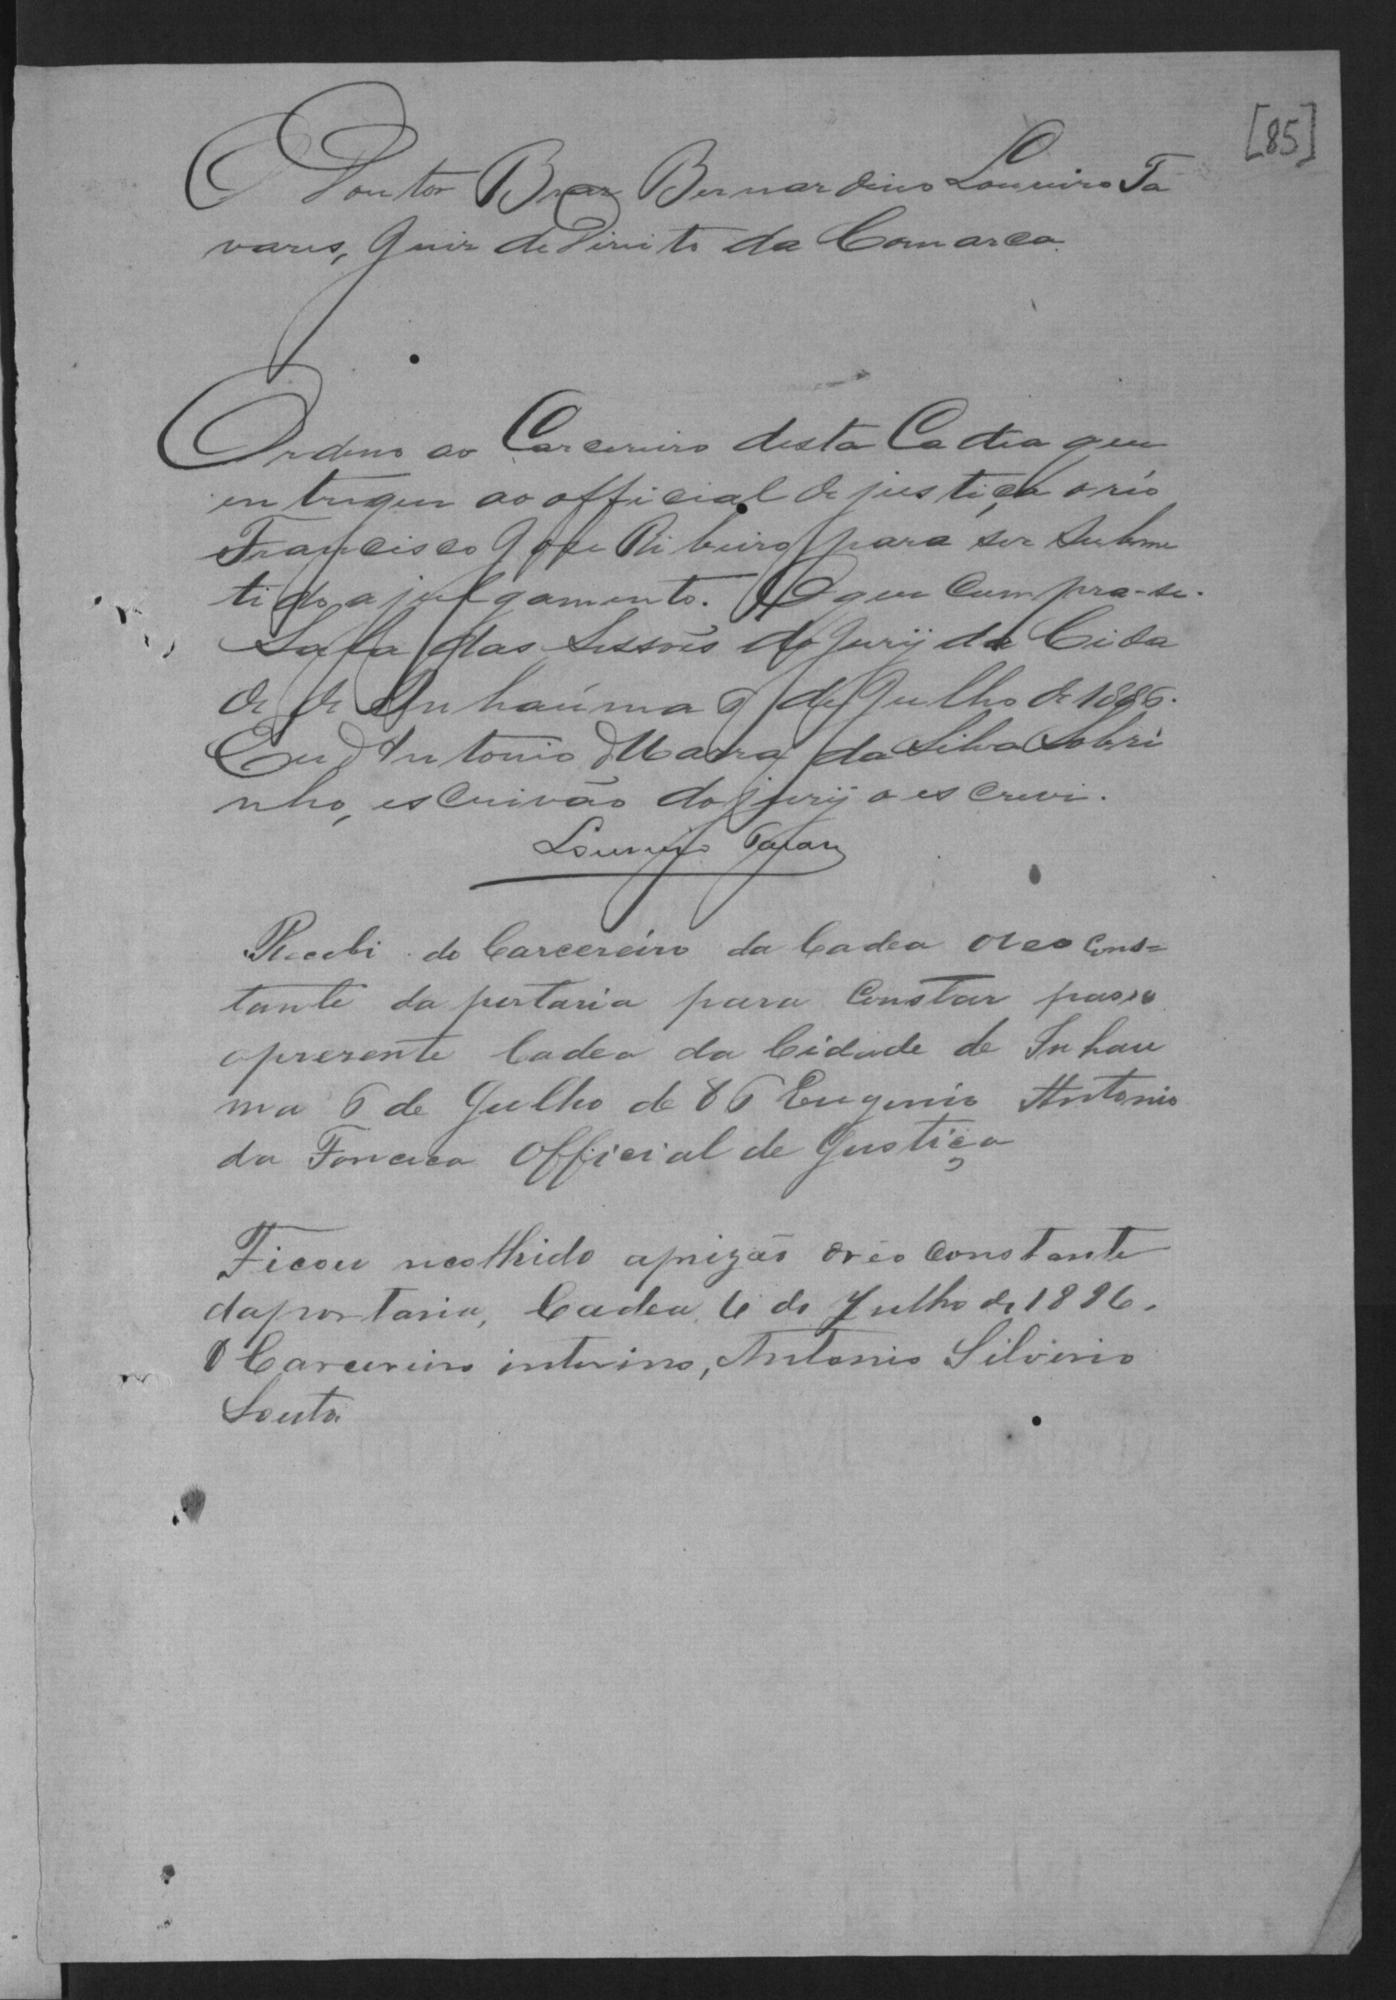 [85]
O Doutor Braz Bernardino Loureiro Ta
vares, Juiz de Direito da Comarca.
Ordeno ao Carcereiro desta Cadea que
entregue ao official de justiça o réo
Francisco José Ribeiro para ser subme
tido a julgamento. O que cumpra-se.
Sala das Sessões do Jury da Cida
de de Inhaúma 6 de Julho de 1886.
Eu Antonio Maria da Silva Sobri
nho, escrivão do jury o escrevi.
Loureiro Tavares
Recebi do Carcereiro da Cadea o reo cons=
tante da portaria para constar passo
apresente Cadea da Cidade de Inhau
ma 6 de Julho de 86 Eugenio Antonio
da Fonceca Official de Justiça
Ficou recolhido aprizão oreo constante
daportaria, Cadea, 6 de Julho de 1886.
O Carcereiro interino, Antonio Silverio
Souto